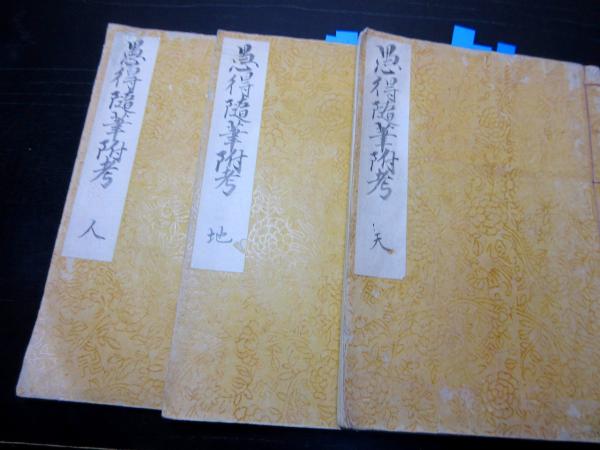 愚得隨筆附考
天
愚得隨筆附考
地
愚得隨筆附考
人